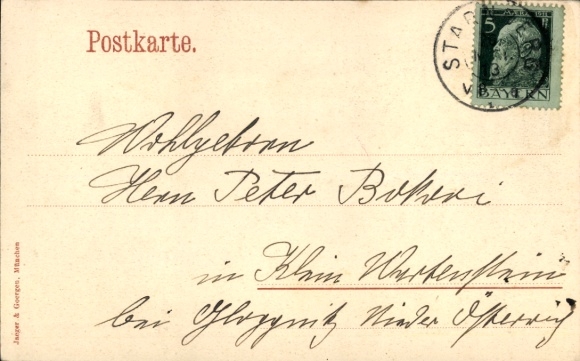 Postkarte.
5
BAYERN
Wohlgeborn
Herrn Peter Bokori
in Klein Wartenstein
bei Gloggnitz Nieder Österreich
Jaeger & Goergen, München